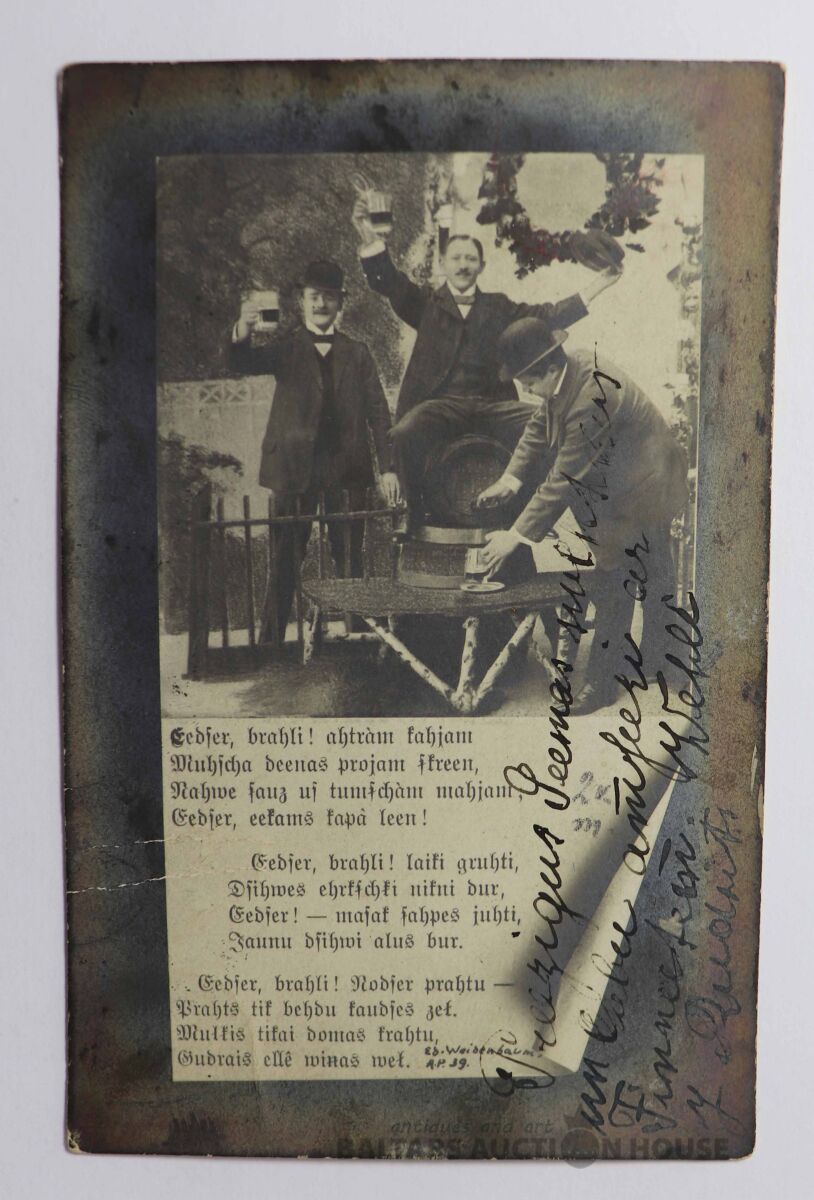 Eedſer, brahli! ahtràm kahjam
Muhſcha deenas projam ſkreen,
Nahwe ſauz uſ tumſchàm mahjam,
Eedſer, eekams kapà leen!
Eedſer, brahli! laiki gruhti,
Dſihwes ehrkſchki nikni dur,
Eedſer! — maſak ſahpes juhti,
Jaunu dſihwi alus bur.
Eedſer, brahli! Nodſer prahtu —
Prahts tik behdu kaudſes zeł.
Mulkis tikai domas krahtu,
Gudrais ellê winas weł.
Ed. Weidenbaum.
A.P. 39.
Preezigus Seemas
un
antiques and art
BALTARS AUCTION HOUSE